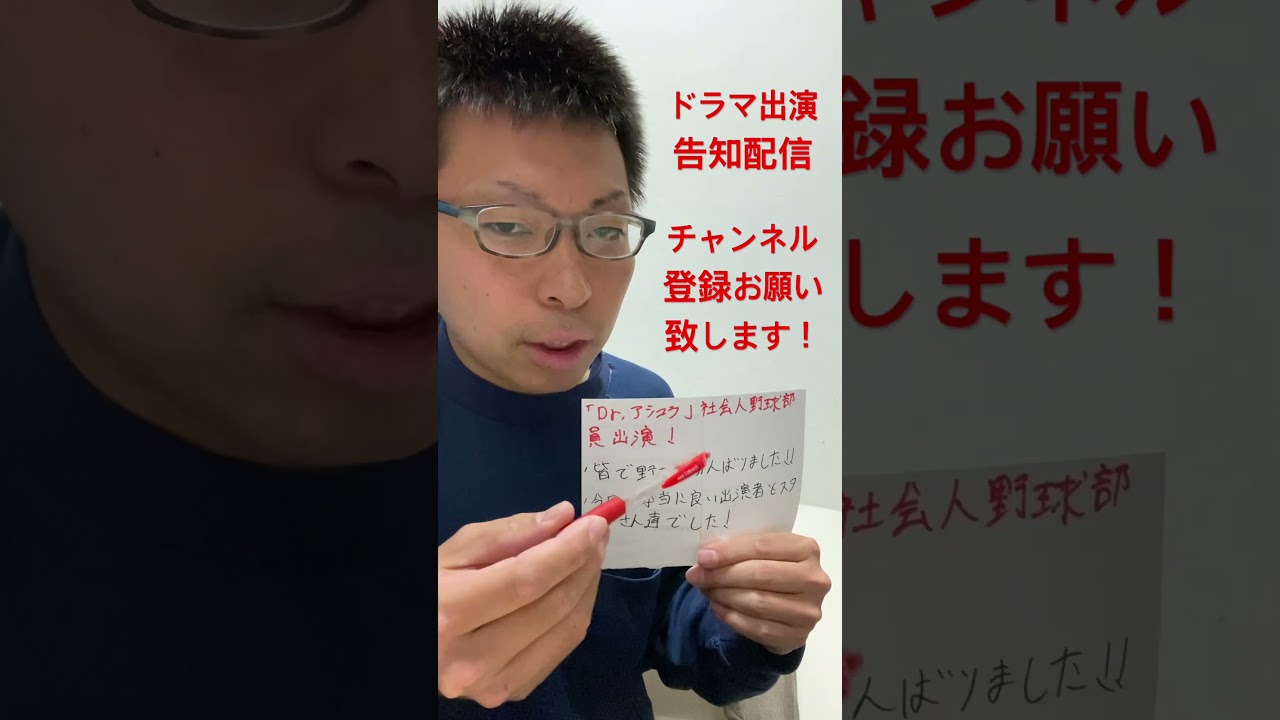 ドラマ出演
告知配信
チャンネル
登録お願い
致します！
「Dr.アシュラ」社会人野球部
員出演！
皆で野 んばりました!!
本当に良い出演者とスタ
さん達でした！
録お願い
します！
社会人野球部
んばりました!!